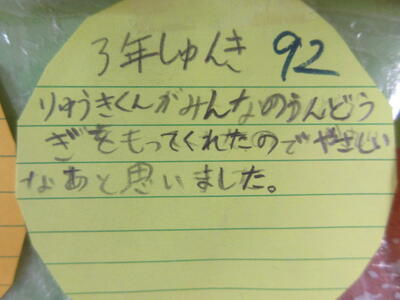 3年しゅんき 92
りゅうきくんがみんなのうんどう
ぎをもってくれたのでやさしい
なあと思いました。